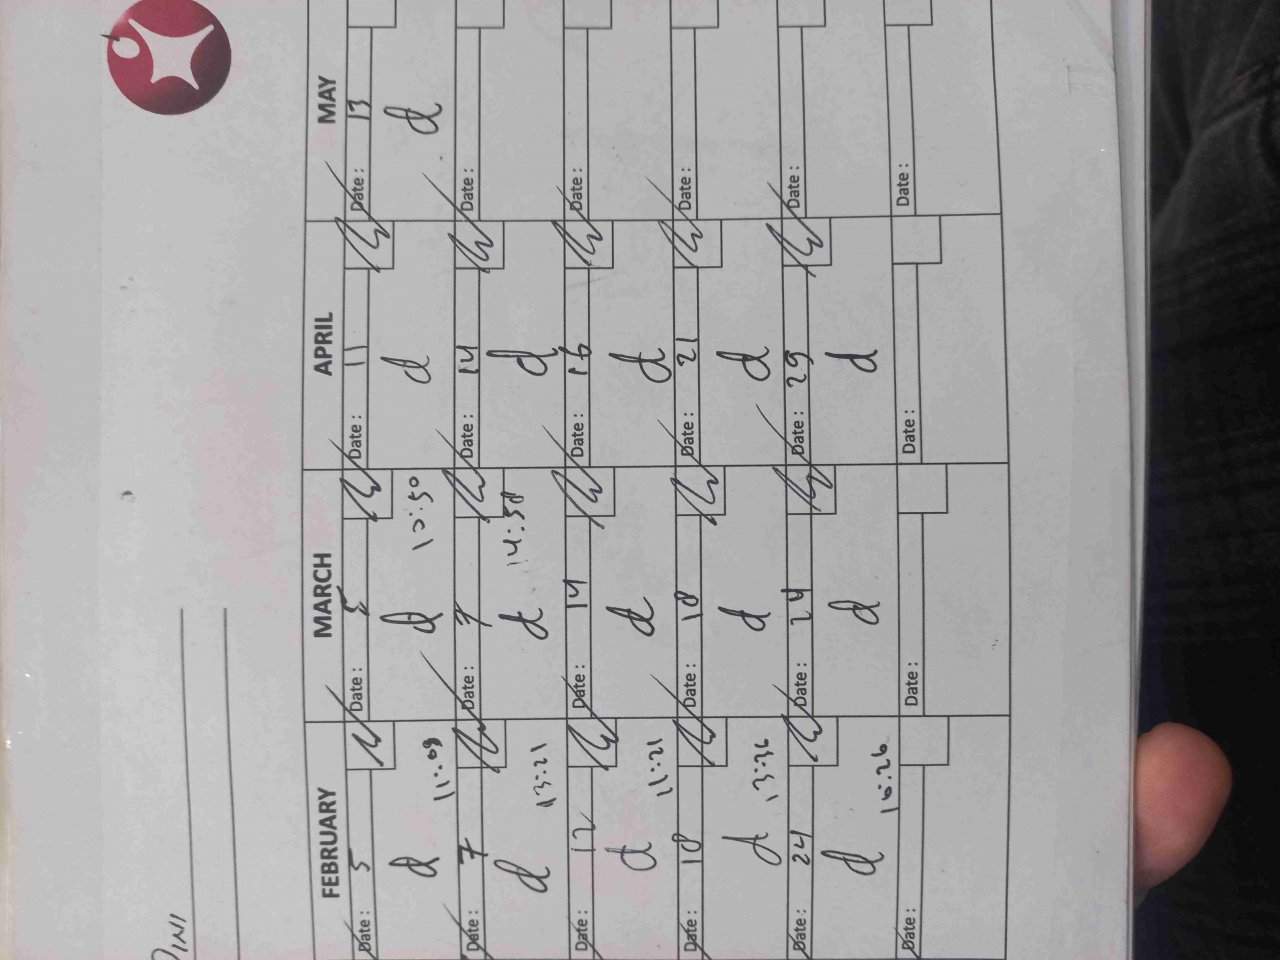 DINI
FEBRUARY MARCH APRIL MAY
Date: 5 Date: 5 Date: 11 Date: 13
d 11:09 d 12:50 d d
Date: 7 Date: 7 Date: 14 Date:
d 13:21 d 14:38 d
Date: 12 Date: 14 Date: 16 Date:
d 11:21 d d
Date: 18 Date: 18 Date: 21 Date:
d 13:36 d d
Date: 24 Date: 24 Date: 29 Date:
d 16:26 d d
Date: Date: Date: Date: